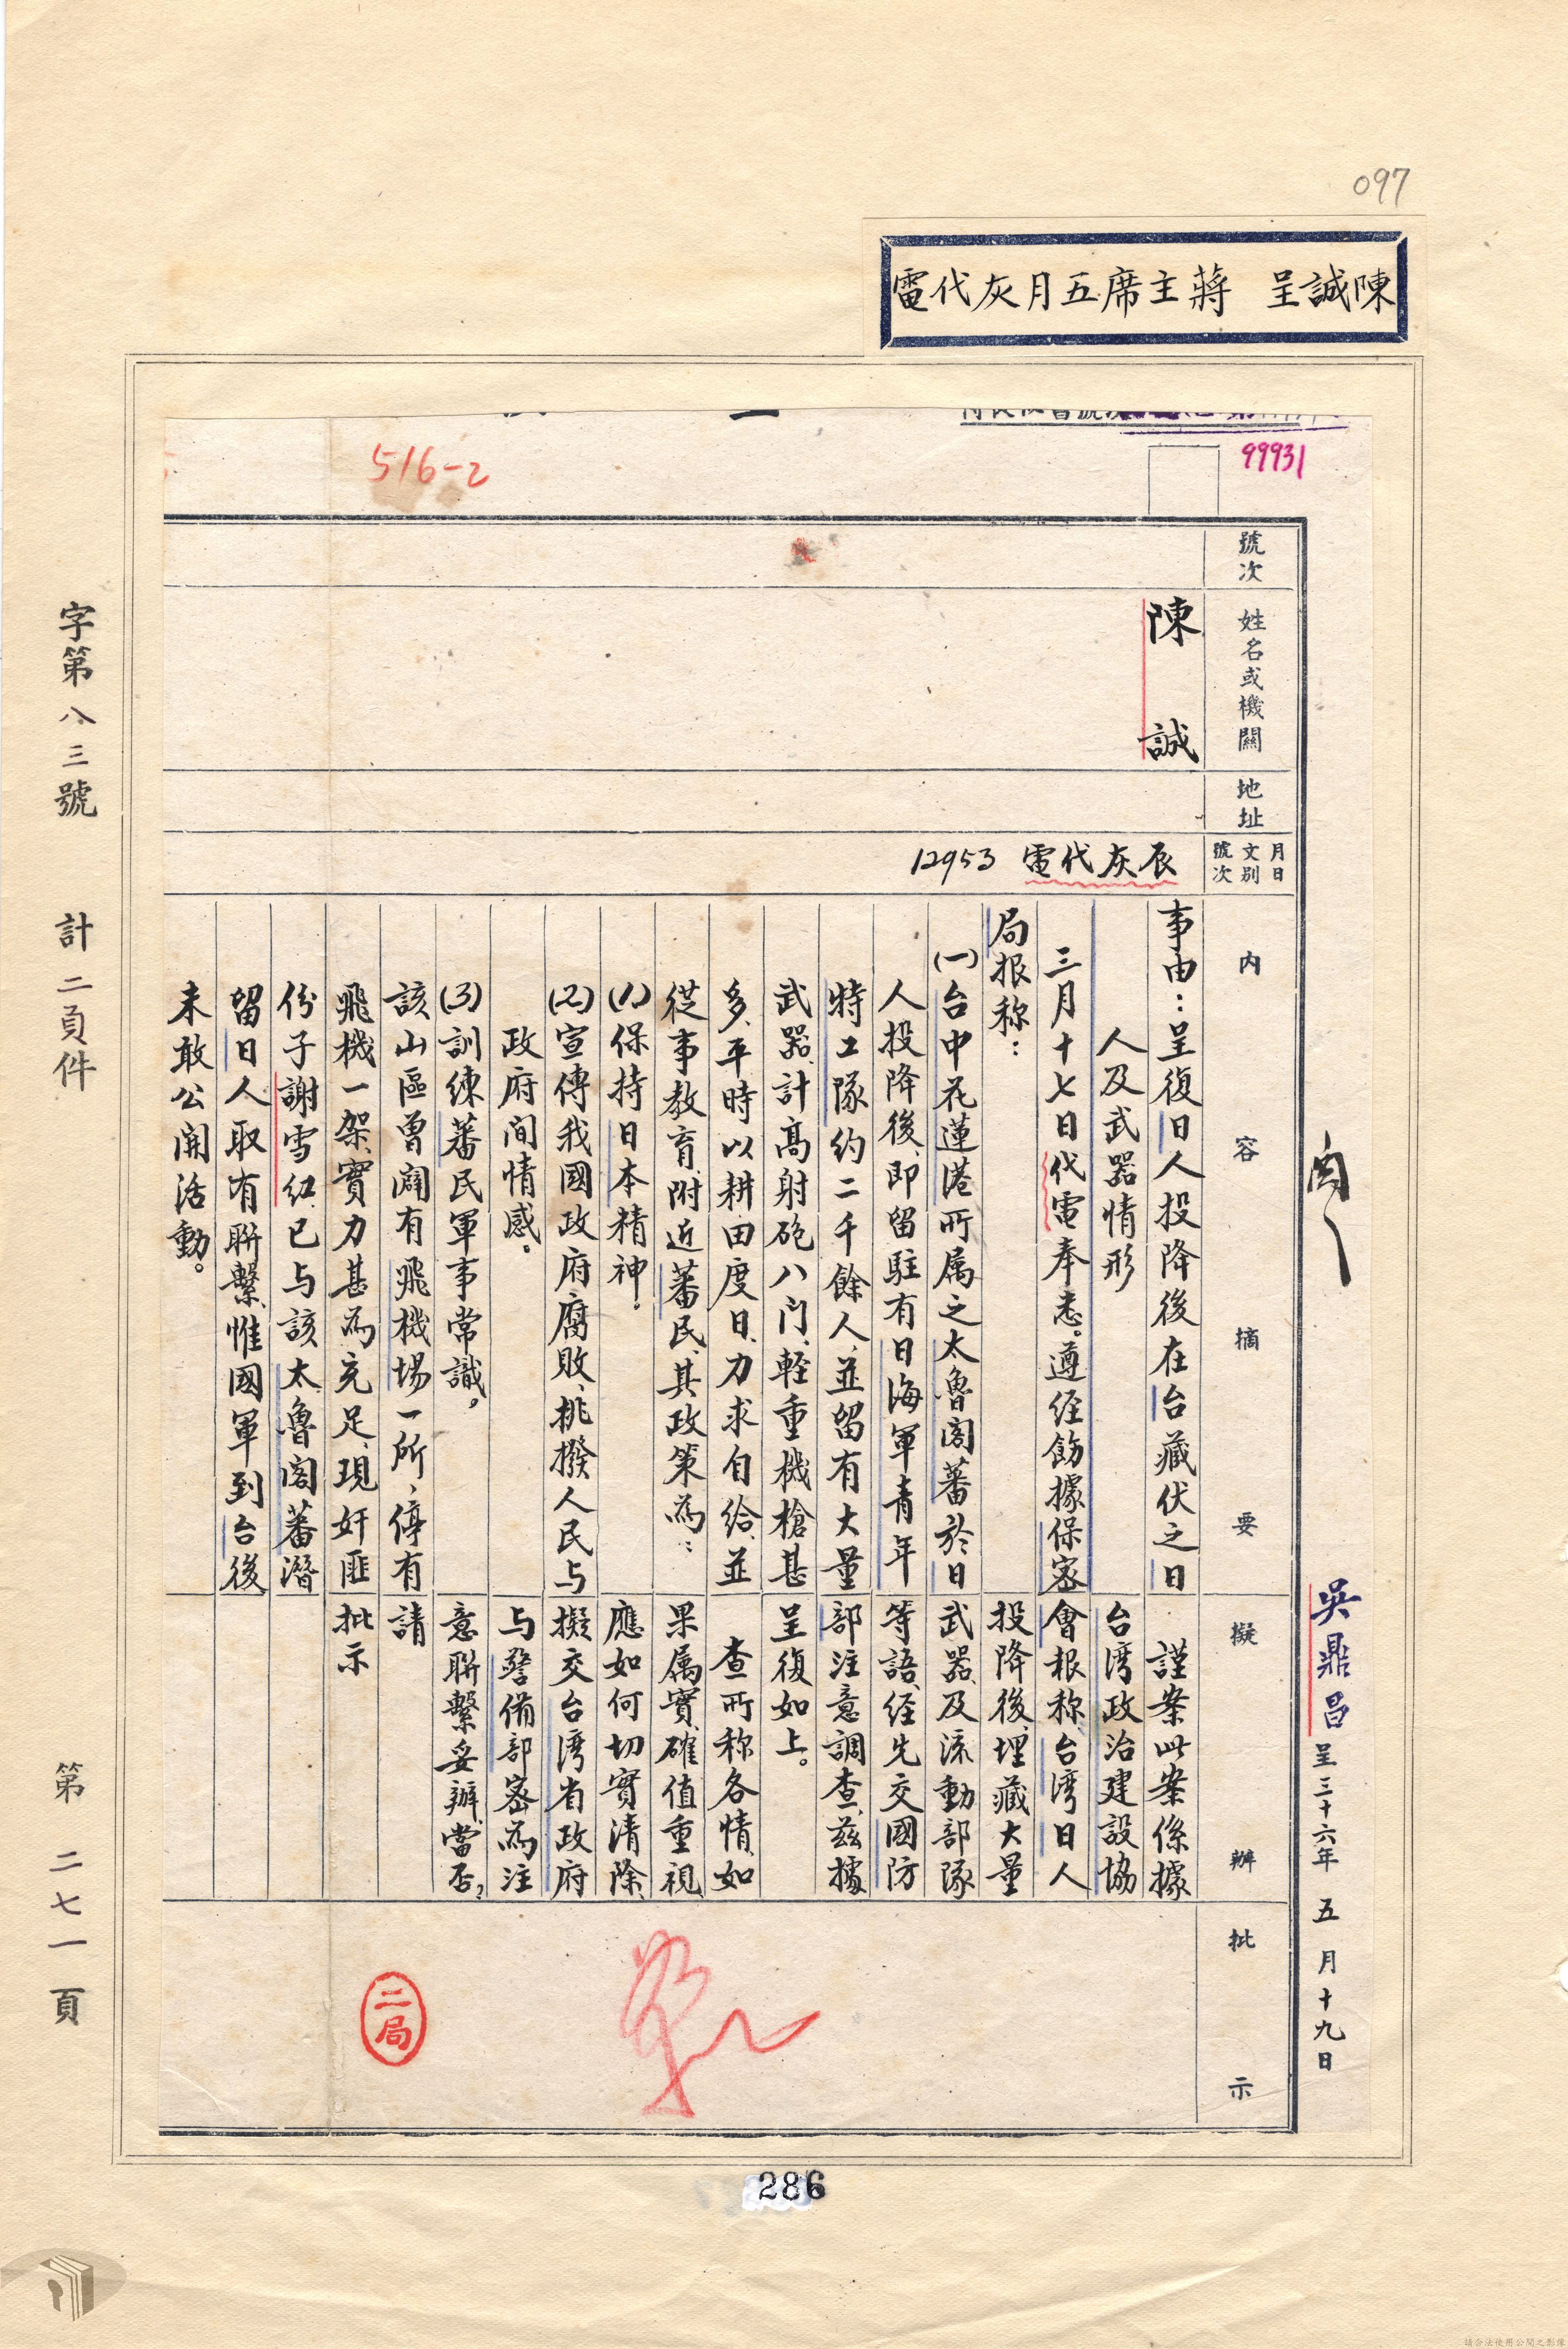 097
陳誠呈 蔣主席五月灰代電
99931
516-2
號次
姓名或機關
地址
月日文別號次
內容摘要
擬辦
批示
吳鼎昌呈三十六年五月十九日
陳誠
辰灰代電 12953
事由：呈復日人投降後在台藏伏之日
人及武器情形
三月十七日代電奉悉。遵經飭據保密
局报称：
(一)台中花蓮港所属之太魯閣蕃於日
人投降後、即留駐有日海軍青年
特工隊約二千餘人、並留有大量
武器、計高射砲八门、軽重機槍甚
多、平時以耕田度日、力求自給、並
從事教育附近蕃民、其政策為：
(1)保持日本精神。
(2)宣傳我國政府腐敗、挑撥人民与
政府间情感。
(3)訓練蕃民軍事常識。
該山區曾闢有飛機場一所、停有
飛機一架、實力甚為充足、現奸匪
份子謝雪红已与該太魯閣蕃潛
留日人取有聯繫、惟國軍到台後
未敢公開活動。
謹案此案係據
台湾政治建設協
會报称、台湾日人
投降後、埋藏大量
武器、及流動部隊
等語、経先交國防
部注意調查、茲據
呈復如上。
查所称各情、如
果属實、確值重視、
應如何切實清除、
擬交台湾省政府
与警備部密為注
意聯繫妥辦、當否、
請
批示
二局
字第八三號 計二頁件 第二七一頁
286
請合法使用公開之影像